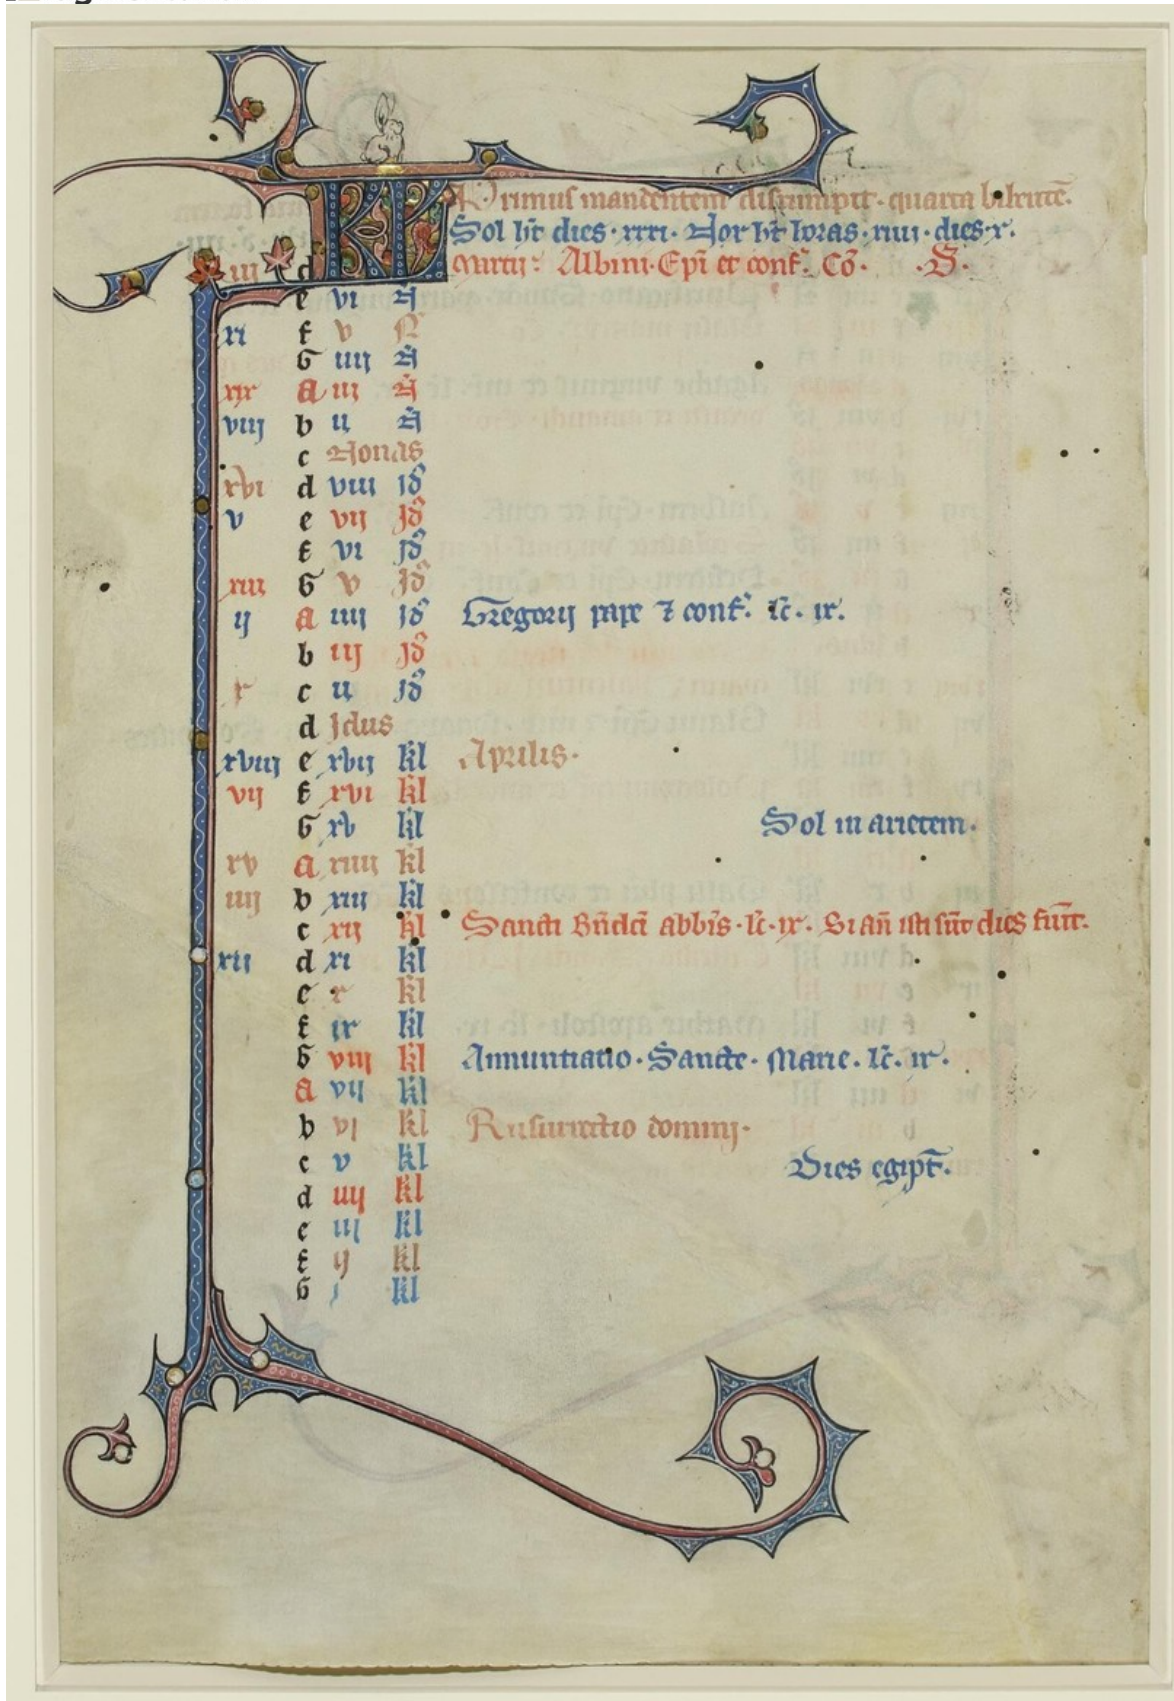 Primus mandentem disrumpit. quarta bibente.
KL Sol ht dies. xxxi. Nox ht horas. xiiii. dies. x.
iii d Martii: Albini. Epi et conf. Co. .S.
e vi N
xi f v N
G iiij N
xix a iij N
viij b ij N
c Nonas
xvi d viii id
v e vij id
f vi id
xiij G v id
ij a iiij id Gregorij pape 7 conf. lc. ix.
b iij id
x c ij id
d idus
xviij e xvij kl Aprilis.
vij f xvi kl
G xv kl Sol in arietem.
xv a xiiij kl
iiij b xiij kl
c xij kl Sancti Bndcti abbis. lc. ix. Si an isti sunt dies
xij d xi kl
e x kl
f ix kl
G viij kl Annuntiatio. Sancte. Marie. lc. ix.
a vij kl
b vj kl Resurrectio domini.
c v kl Dies egipt.
d iiij kl
e iij kl
f ij kl
G kl